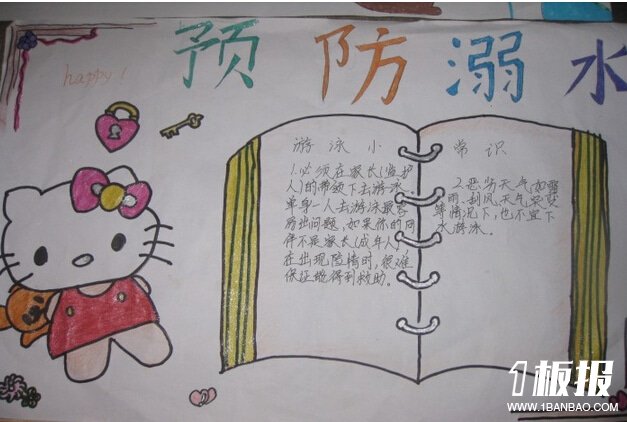 预防溺水
happy!
游泳小常识
1.必须在家长(监护
人)的带领下去游泳。
单身一人去游泳最容
易出问题,如果你的同
伴不是家长(成年人)
在出现险情时,很难
保证能得到救助。
2.恶劣天气如雷
雨、刮风、天气突变
等情况下,也不宜下
水游泳。
1板报
WWW.1BANBAO.COM